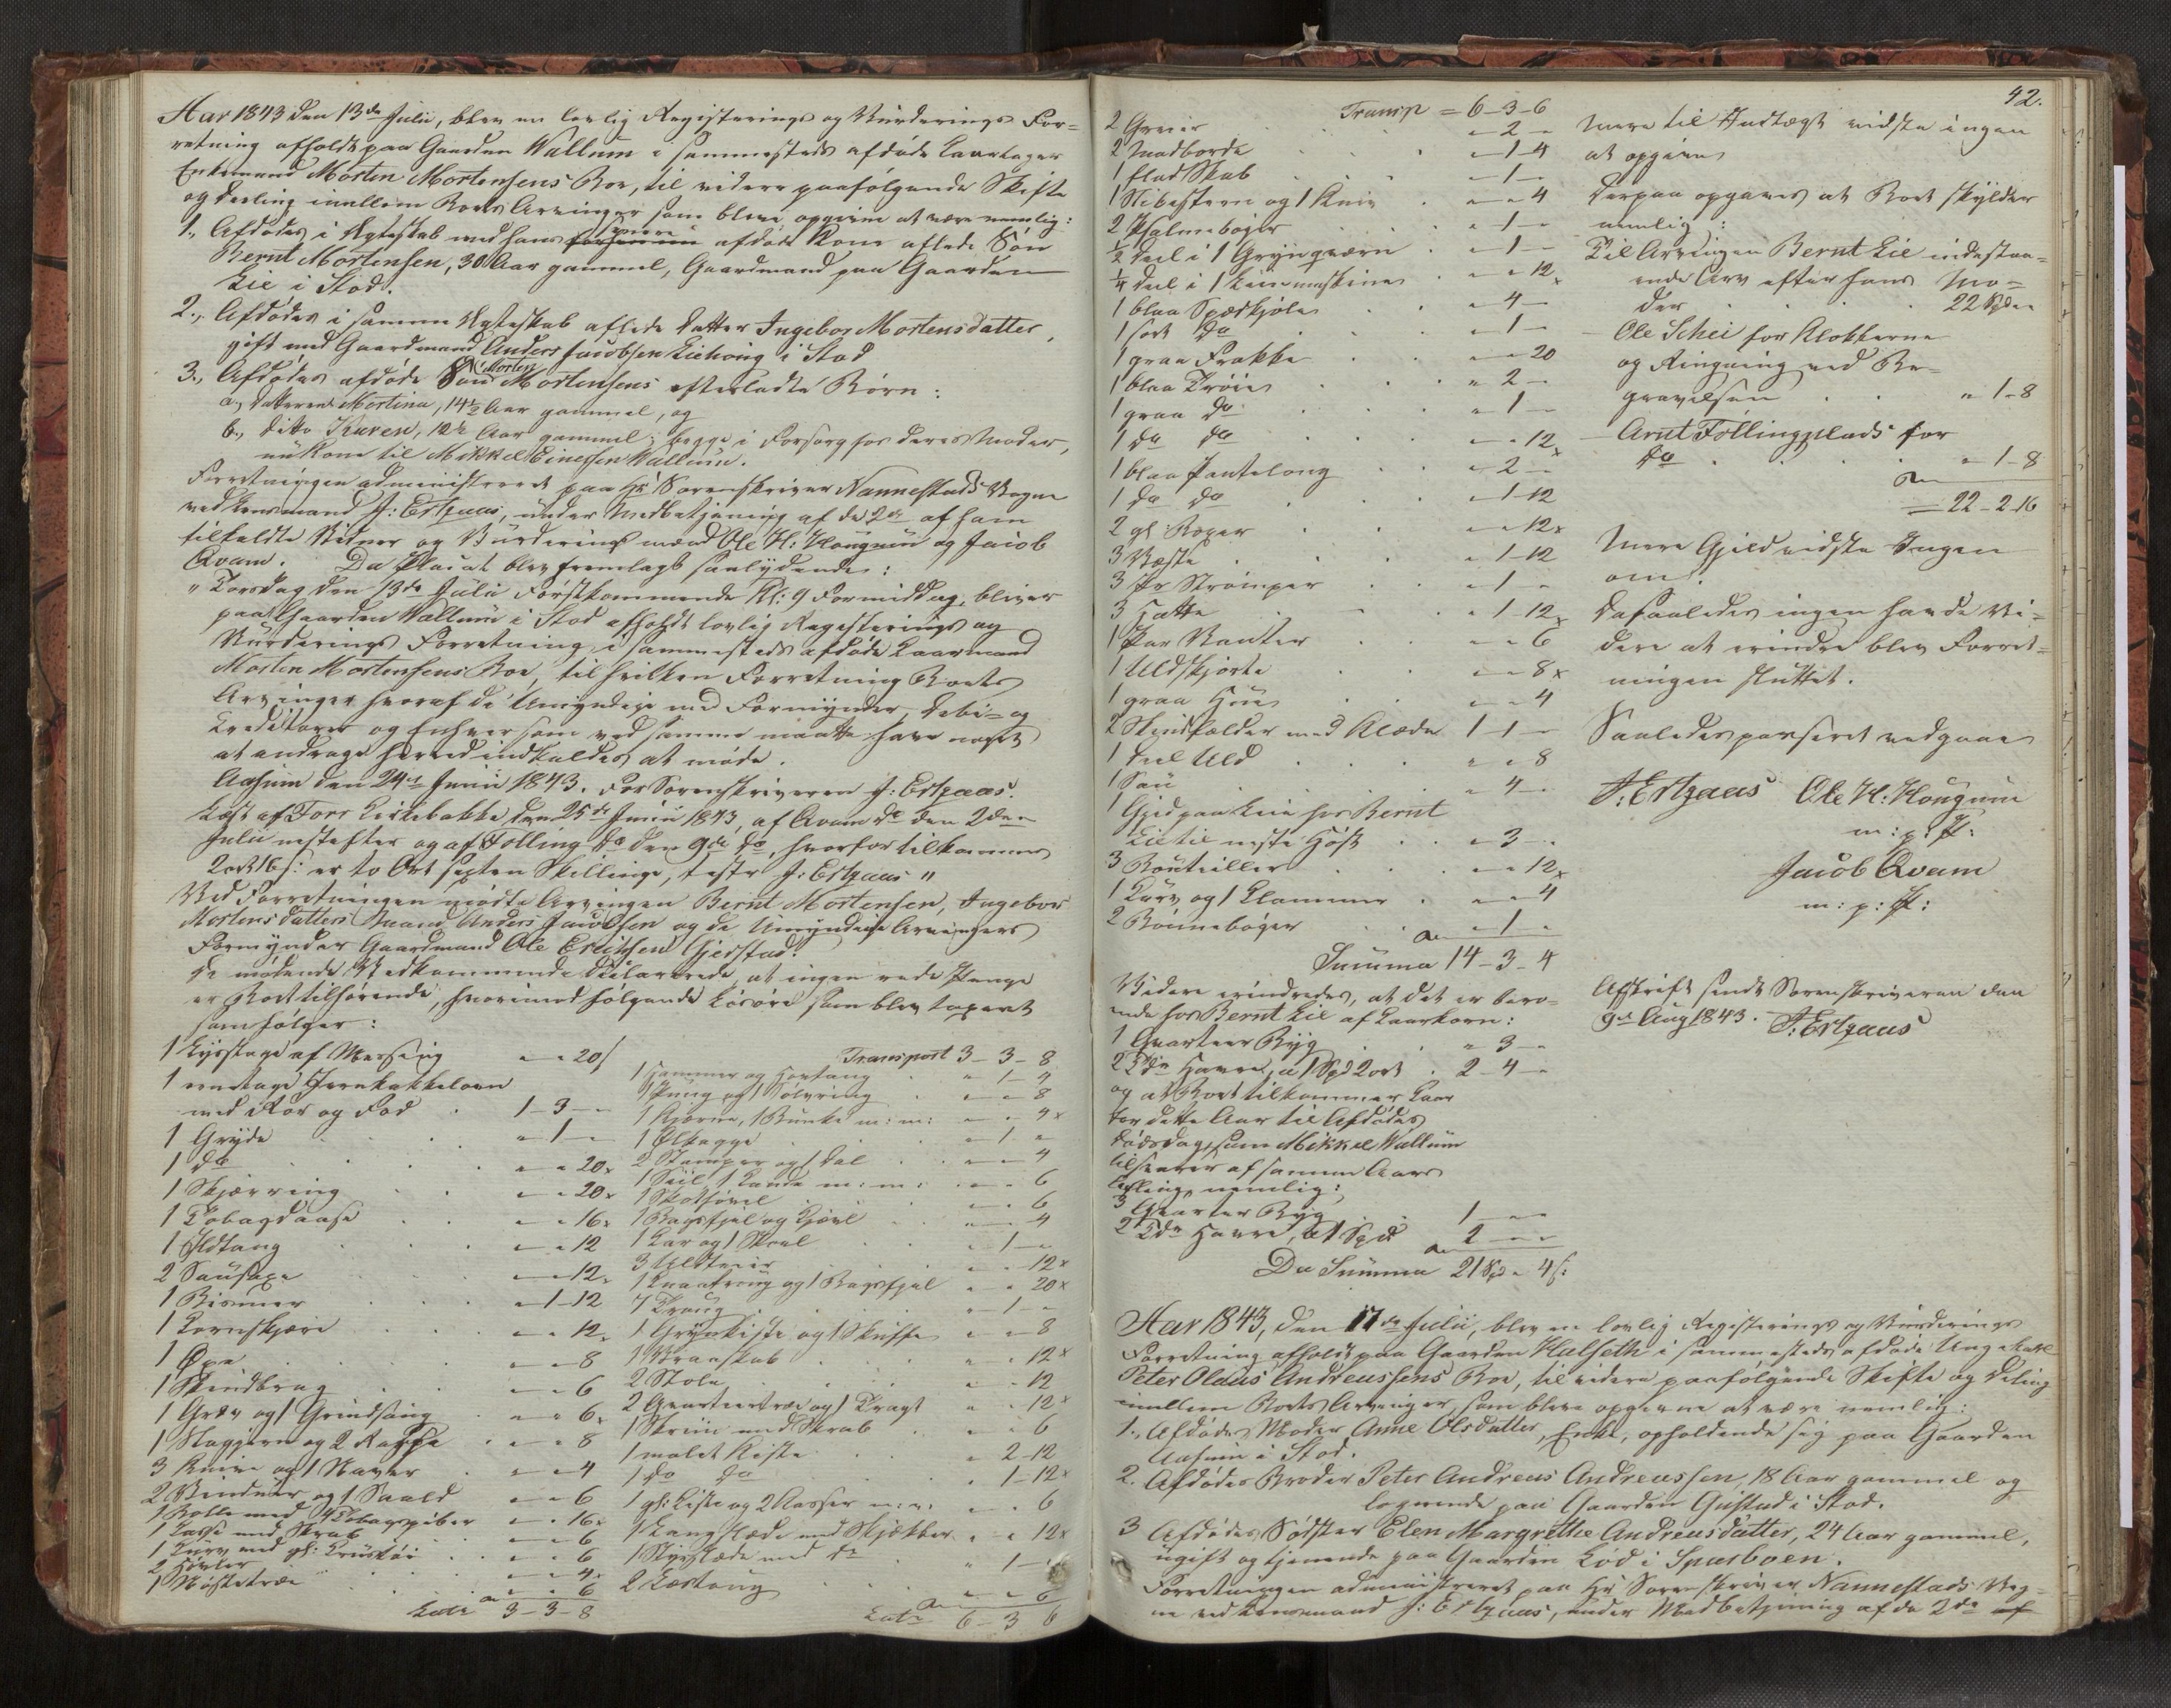 Aar 1843 den 13de Julii, blev en lovlig Registerings og Vurderings For=
retning afholdt paa Gaarden Wallum i sammesteds afdøde Kaartager
Enkemand Morten Mortensens Boe, til videre paafølgende Skifte
og Deeling imellem Boets Arvinger som bleve opgivne at være nemlig:
1., Afdødes i Ægteskab med hans afdøde Kone aflede Søn
Bernt Mortensen, 30 Aar gammel, Gaardmand paa Gaarden
Lie i Stod.
2., Afdødes i samme Ægteskab aflede Datter Ingebor Mortensdatter,
gift med Gaardmand Anders Jacobsen Liehoug i Stod
3., Afdødes afdøde Søn Morten Mortensens efterladte Børn:
a, Datteren Mortina, 14½ Aar gammel, og
b., ditto Karen, 12 Aar gammel; begge i Forsorg hos deres Moder,
nu Kone til Mikkel Einersen Wallum.
Forretningen administreret paa Hr Sorenskriver Nannestads Vegne
ved Lensmand J: Ertzaas, under Medbetjening af de 2de af ham
tilkaldte Vidner og Vurderings mænd Ole H: Hougum og Jacob
Qvam. Da Placat blev fremlagt saalydende:
"Torsdag den 13de Julii førstkommende Kl: 9 Formiddag, bliver
paa Gaarden Wallum i Stod afholdt lovlig Registerings og
Vurderings Forretning i sammesteds afdøde Kaarmand
Morten Mortensens Boe, til hvilken Forretning Boets
Arvinger hvoraf de Umyndige med Formynder, Debi= og
Creditorer og Enhver som ved samme maatte have noget
at andrage herved indkaldes at møde.
Aasum den 24de Junii 1843. For Sorenskriveren J: Ertzaas.
Læst af For Kirkebakke den 25de Junii 1843, af Qvam do den 2den
Julii nestefter og af Følling do den 9de do, hvorfor tilkommer
2ort 16s: er to Ort sexten Skillinge, testr J: Ertzaas"
Ved Forretningen mødte Arvingen Bernt Mortensen, Ingebor
Mortensdatters Mand Anders Jacobsen og de Umyndige Arvingers
Formynder Gaardmand Ole Erichsen Gjerstad.
De mødende Vedkommende declarerede, at ingen rede Penge
er Boet tilhørende, hvorimod følgende Løsøre som blev taxeret
som følger:
1 Lysstage af Messing - - 20
1 Jernkakkelovn
med Rør og Fod 1-3-
1 Gryde - 1 -
1 do - - 20
1 Skjærring - - 20
1 Tobagsdaase - - 16
1 Ildtang - - 12
2 Sausaxe - - 12
1 Bismer - 1-12
1 Kornskjære - - 12
1 Øxe - - 8
1 - - 6
1 og 1 - - 6
1 og 2 - - 8
3 Knive og 1 Naver - - 4
2 og 1 Saald - - 6
1 Bolle med 4 Tobagspiber - - 16
1 Kasse med Skrab - - 6
1 Kurv med gl: - - 6
2 Høvler - - 4
1 - - 6
Latr 3-3-8
Transport 3-3-8
1 Hammer og Hovtang - 1-4
1 Pung og 1 Sølvring - - 8
1 Kjærne, 1 Bunke m: m: - - 4
1 Ølkagge - 1 -
2 Stamper og 1 Dal - - 4
1 Siil, 1 Kande m: m: - - 6
1 - - 6
1 Bagefjel og Kjævl - - 4
1 Kar og 1 - 1 -
3 - - 12
1 og 1 Bagefjel - - 20
7 Traug - 1 -
1 Grynkiste og 1 Skuffe - - 8
1 Vraaskab - - 12
2 Stole - - 12
2 og 1 Tragt - - 12
1 Skriin med Skrab - - 6
1 malet Kiste - 2-12
1 do do - 1-12
1 gl: Kiste og 2 Kasser m:m: - - 6
1 Langslæde med Skjækker - - 12
1 Slæde med do - 1 -
2 - - 6
Latr 6-3 6
42.
Transp = 6-3-6
2 - 2 -
2 Madborde - 1-4
1 flad Skab - 1 -
1 og 1 Kniv - - 4
2 Psalmebøger - 1 -
½ Deel i 1 Grynqværn - 1 -
¼ Deel i 1 - - 12
1 blaa - 4 -
1 sort do - 1 -
1 graa Frakke - - 20
1 blaa Trøie - 2 -
1 graa do - 1 -
1 do do - - 12
1 blaa Pantelong - 2 -
1 do do - 1-12
2 gl: - - 12
3 Væste - 1-12
3 Pr Strømper - 1 -
3 Hatte - 1-12
1 Par Vanter - - 6
1 Uldskjorte - - 8
1 graa Hue - - 4
2 Skindfælder med Klæde 1-1-
1 Deel Uld - - 8
1 Sau - 4 -
1 Gjed paa Leie hos Bernt
Lie til neste Høst - 3 -
3 Bouteiller - - 12
1 Kurv og 1 Klammer - - 4
2 Bønnebøger - 1 -
Summa 14-3-4
Videre erindredes, at det er bero=
ende hos Bernt Lie af Kaarkorn:
1 Qvarteer Byg - 3 -
2 Tdr Havre, a 1 Spd 2ort 2-4-
og at Boet tilkommer Kaar
for dette Aar til Afdødes
Dødsdag, som Mikkel Wallum
tilsvarer af samme Aars
Avling, nemlig:
3 Qvarter Byg 1 - -
2 Tdr Havre, a 1 Spd 2 - -
Da Summa 21 Spd - 4s:
Mere til Indtægt vidste ingen
at opgive
Derpaa opgaves at Boet skylder
nemlig:
Til Arvingen Bernt Lie indestaa=
ende Arv efter hans Mo=
der 22 Spd
Ole Schei for Klokkerne
og Ringning ved Be=
gravelsen - 1-8
Arnt Føllingplads for
do - 1-8
22-2-16
Mere Gjeld vidste Ingen
om.
Da saaledes ingen havde Vi=
dere at erindre blev Forret=
ningen sluttet.
Saaledes passeret vedgaaes
J: Ertzaas Ole H: Hougum
m: p: P:
Jacob Qvam
m: p: P:
Afskrift sendt Sorenskriveren den
9de Aug 1843. J: Ertzaas
Aar 1843, den 17de Julii, blev en lovlig Registerings og Vurderings
Forretning afholdt paa Gaarden Halseth i sammesteds afdøde Ungekarl
Peter Olaus Andreassens Boe, til videre paafølgende Skifte og Deling
imellem Boets Arvinger, som bleve opgivne at være nemlig:
1., Afdødes Moder Anne Olsdatter, Enke, opholdende sig paa Gaarden
Aasum i Stod.
2. Afdødes Broder Peter Andreas Andreassen, 18 Aar gammel og
logerende paa Gaarden Gustad i Stod.
3 Afdødes Sødster Elen Margrethe Andreasdatter, 24 Aar gammel,
ugift og tjenende paa Gaarden Lød i Sparboen.
Forretningen administreret paa Hr Sorenskriver Nannestads Veg=
ne ved Lensmand J: Ertzaas, under Medbetjening af de 2de af